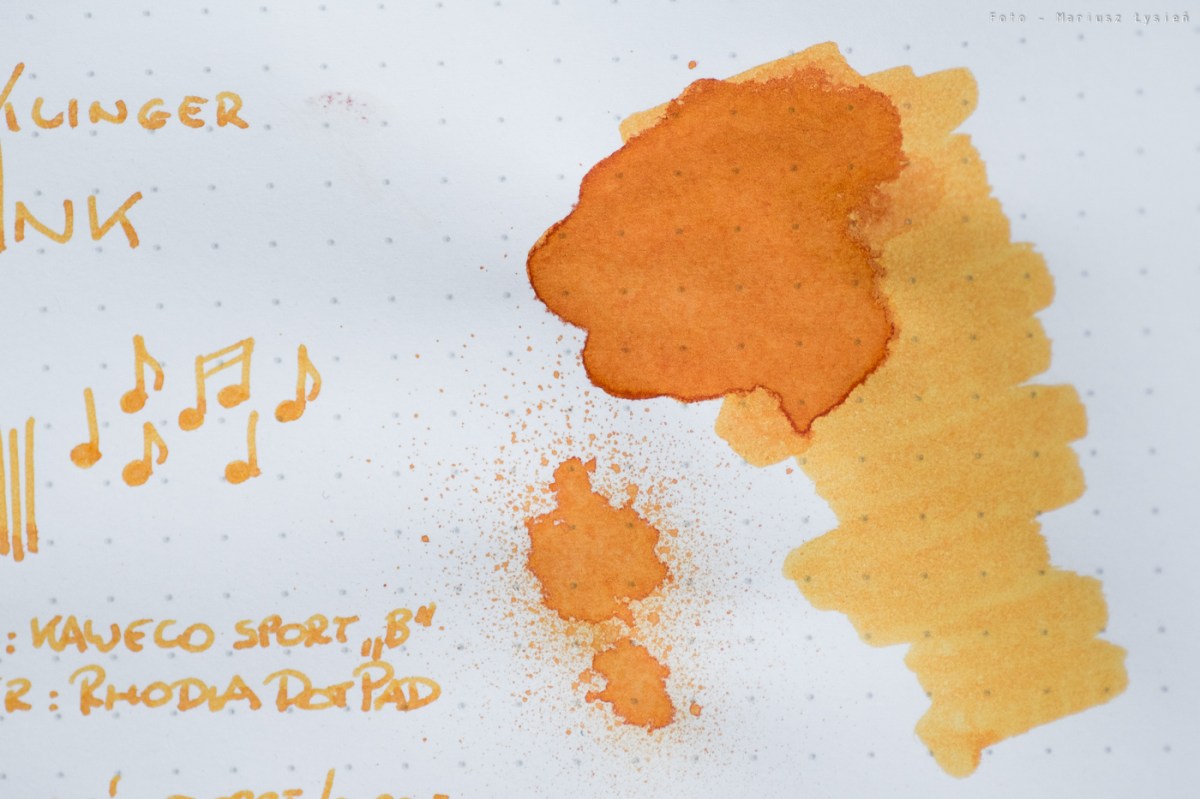 Foto - Mariusz Łysień
KLINGER
INK
: KAWECO SPORT „B"
ER : RHODIA DOTPAD